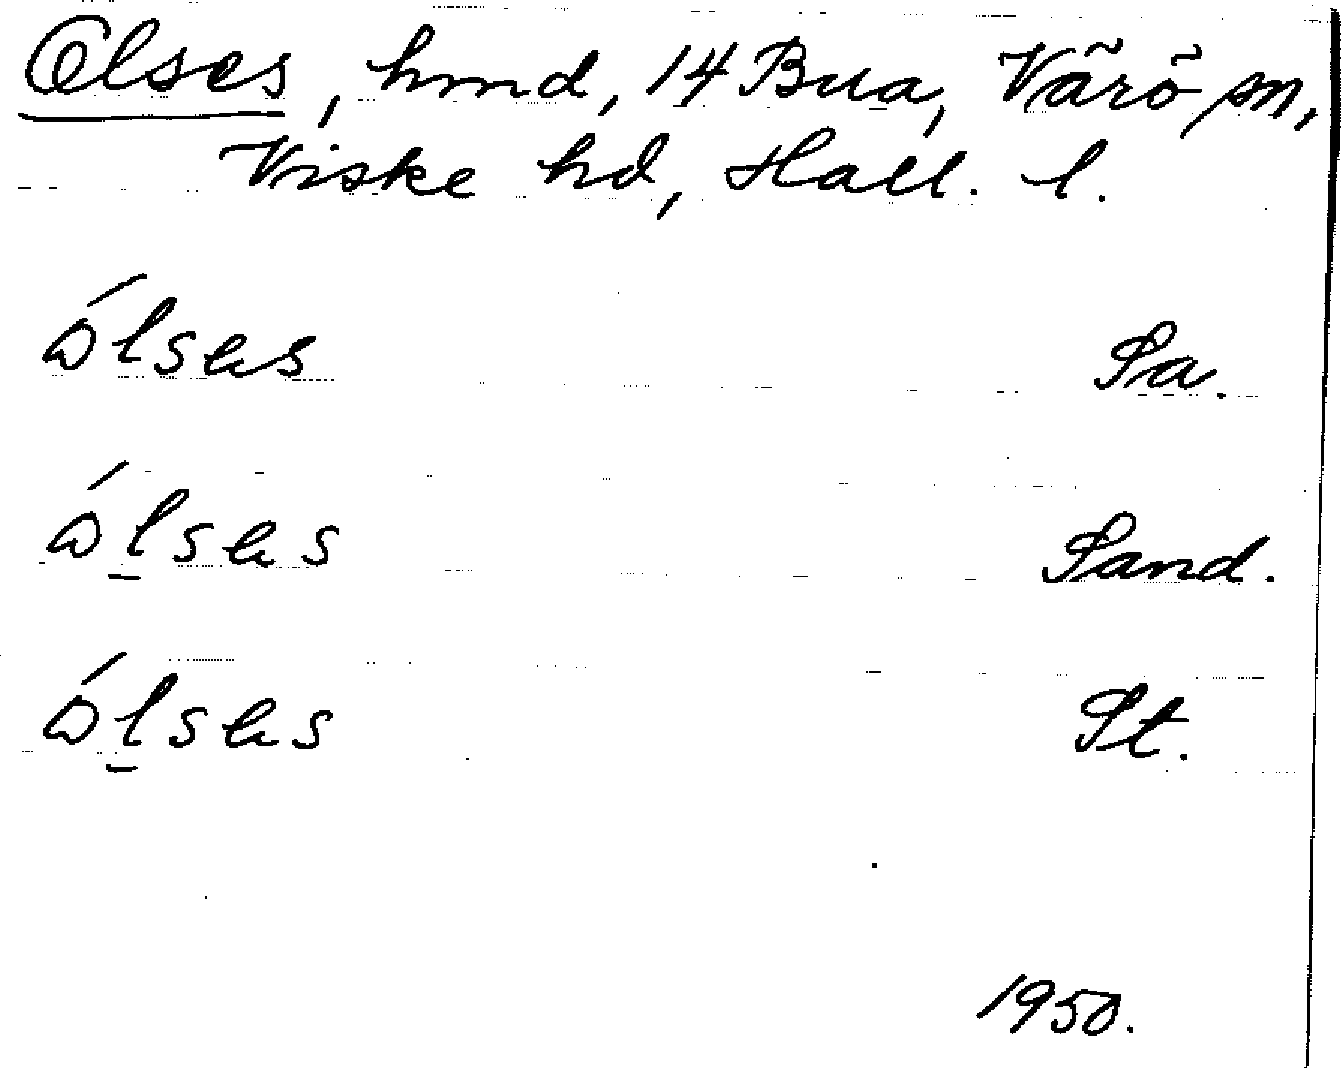 Olses, hmd, 14 Bua, Värö sn,
Viske hd, Hall. l.
ólsas Sa.
ólsas Sand.
ólsas St.
1950.